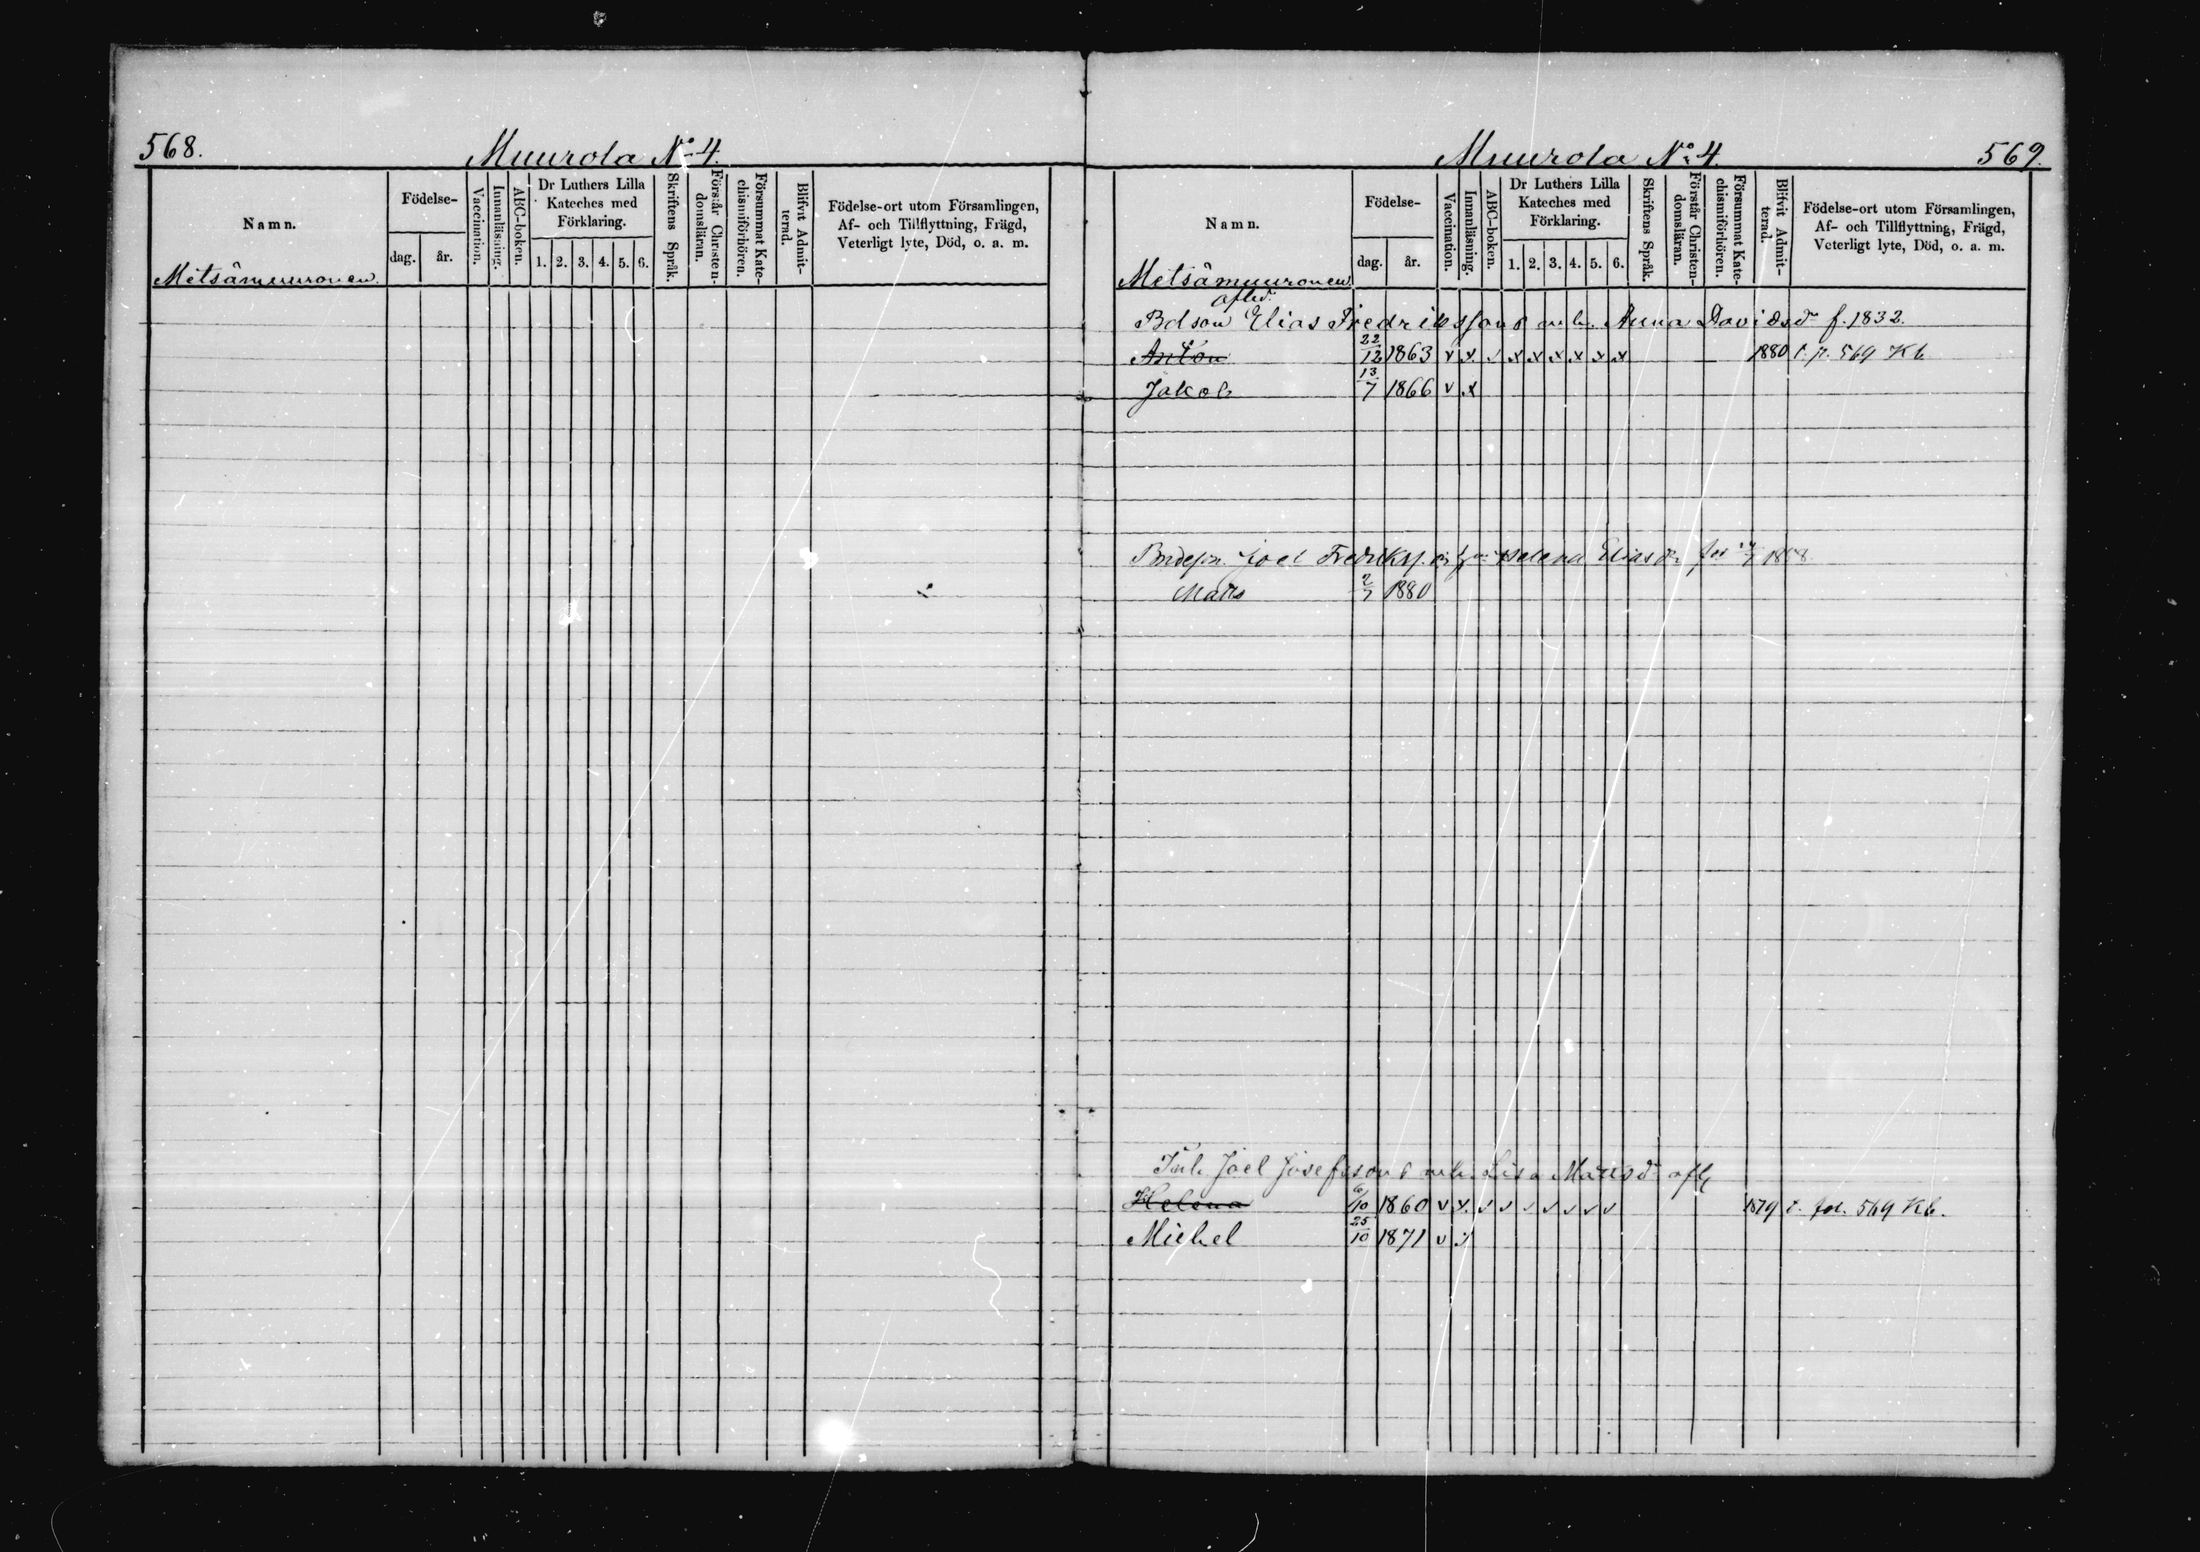 568.
Muurola No 4.
Namn.
Födelse-
dag.
år.
Vaccination.
Innanläsning.
ABC-boken.
Dr Luthers Lilla
Kateches med
Förklaring.
1. 2. 3. 4. 5. 6.
Skriftens Språk.
Förstår Christen-
domsläran.
Försummat Kate-
chismiförhören.
Blifvit Admit-
terad.
Födelse-ort utom Församlingen,
Af- och Tillflyttning, Frägd,
Veterligt lyte, Död, o. a. m.
Metsämuuronen
Muurola No 4.
569.
Namn.
Födelse-
dag.
år.
Vaccination.
Innanläsning.
ABC-boken.
Dr Luthers Lilla
Kateches med
Förklaring.
1. 2. 3. 4. 5. 6.
Skriftens Språk.
Förstår Christen-
domsläran.
Försummat Kate-
chismiförhören.
Blifvit Admit-
terad.
Födelse-ort utom Församlingen,
Af- och Tillflyttning, Frägd,
Veterligt lyte, Död, o. a. m.
Metsämuuronen
Bdson Elias Fredriksson Anna Davidsdr f. 1832.
Anton 22/12 1863 v x v x x x x x x 1880 t. p. 569 Kb
Jakob 13/7 1866 v x
Joel Helena Eliasdr
Matts 2/7 1880
Inh. Joel Josefsson Lisa Mattsdr
Helena 6/10 1860 v x v v v v v v v 1879 t. fol. 569 Kb.
Michel 25/10 1871 v